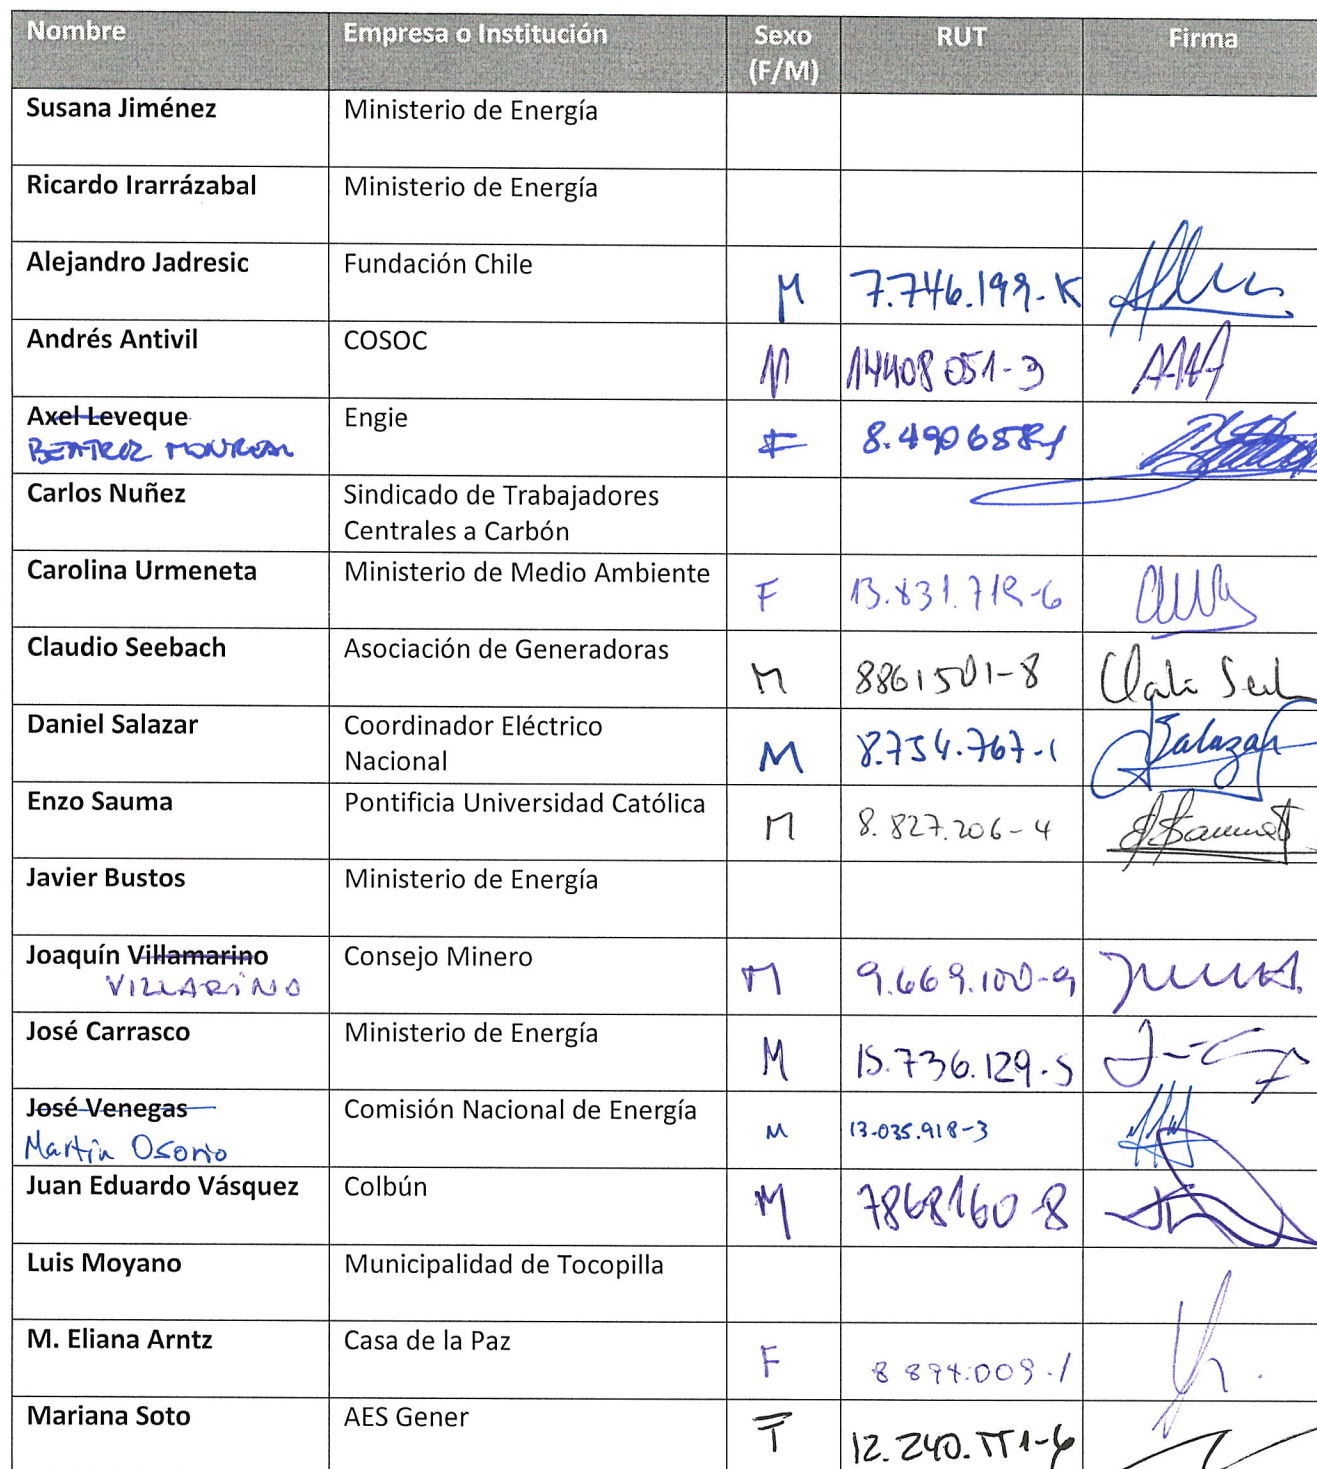 Nombre Empresa o Institución Sexo RUT Firma
(F/M)
Susana Jiménez Ministerio de Energía
Ricardo Irarrázabal Ministerio de Energía
Alejandro Jadresic Fundación Chile M 7.746.199-K
Andrés Antivil COSOC M 14408051-3
Axel Leveque Engie F
BEATRIZ MONREAL
Carlos Nuñez Sindicado de Trabajadores
Centrales a Carbón
Carolina Urmeneta Ministerio de Medio Ambiente F 13.831.719-6
Claudio Seebach Asociación de Generadoras M 8861501-8
Daniel Salazar Coordinador Eléctrico M 8.754.767-1 Salazar
Nacional
Enzo Sauma Pontificia Universidad Católica M 8.827.206-4
Javier Bustos Ministerio de Energía
Joaquín Villamarino Consejo Minero M 9.669.100-9
VILLARINO
José Carrasco Ministerio de Energía M 15.736.129-5
José Venegas Comisión Nacional de Energía M 13.035.918-3
Martín Osorio
Juan Eduardo Vásquez Colbún M 7868160-8
Luis Moyano Municipalidad de Tocopilla
M. Eliana Arntz Casa de la Paz F 8 894.009-1
Mariana Soto AES Gener F